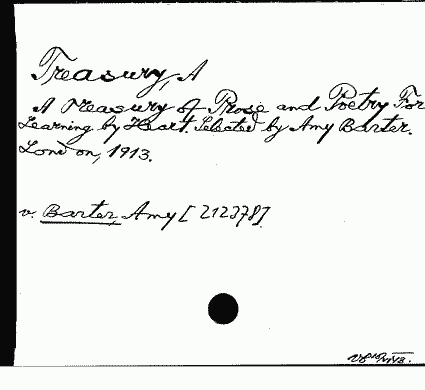 Treasury, A
A Treasury of Prose and Poetry For
Learning by Heart. Selected by Amy Barter.
London, 1913.
v. Barter, Amy [212378]